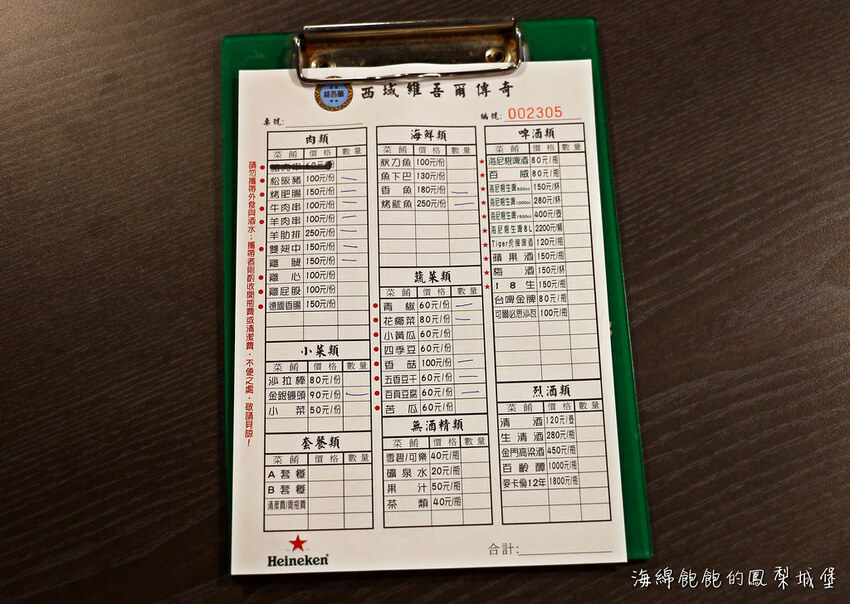 西域維吾爾傳奇
桌號:
編號: 002305
請勿攜帶外食與酒水;攜帶者則酌收開瓶費或清潔費,不便之處,敬請見諒!
肉類
菜餚 價格 數量
松阪豬 100元/份
烤肥腸 150元/份
牛肉串 100元/份
羊肉串 100元/份
羊肋排 250元/份
雙翅中 150元/份
雞腿 150元/份
雞心 100元/份
雞屁股 100元/份
德國香腸 150元/份
小菜類
菜餚 價格 數量
沙拉棒 80元/份
金銀饅頭 90元/份
小菜 50元/份
套餐類
菜餚 價格 數量
A套餐
B套餐
清潔費/開瓶費
海鮮類
菜餚 價格 數量
秋刀魚 100元/份
魚下巴 130元/份
香魚 180元/份
烤魷魚 250元/份
蔬菜類
菜餚 價格 數量
青椒 60元/份
花椰菜 80元/份
小黃瓜 60元/份
四季豆 60元/份
香菇 100元/份
五香豆干 60元/份
百頁豆腐 60元/份
苦瓜 60元/份
無酒精類
菜餚 價格 數量
雪碧/可樂 40元/瓶
礦泉水 20元/瓶
果汁 50元/瓶
茶類 40元/瓶
啤酒類
菜餚 價格 數量
海尼根啤酒 80元/瓶
百威 80元/瓶
海尼根生啤 150元/杯
海尼根生啤 280元/杯
海尼根生啤 400元/壺
海尼根生啤8L 2200元/桶
Tiger虎牌啤酒 120元/瓶
蘋果酒 150元/瓶
梅酒 150元/杯
18生 150元/瓶
台啤金牌 80元/瓶
可爾必思沙瓦 100元/瓶
烈酒類
菜餚 價格 數量
清酒 120元/壺
生清酒 280元/瓶
金門高梁酒 450元/瓶
百齡罈 1000元/瓶
麥卡倫12年 1800元/瓶
合計:
Heineken
海綿飽飽的鳳梨城堡